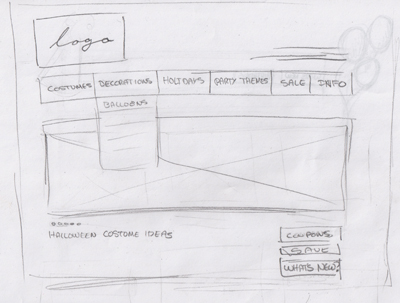 logo
COSTUMES DECORATIONS HOLIDAYS PARTY THEMES SALE INFO
BALLOONS
HALLOWEEN COSTUME IDEAS
COUPONS
SAVE
WHAT'S NEW?